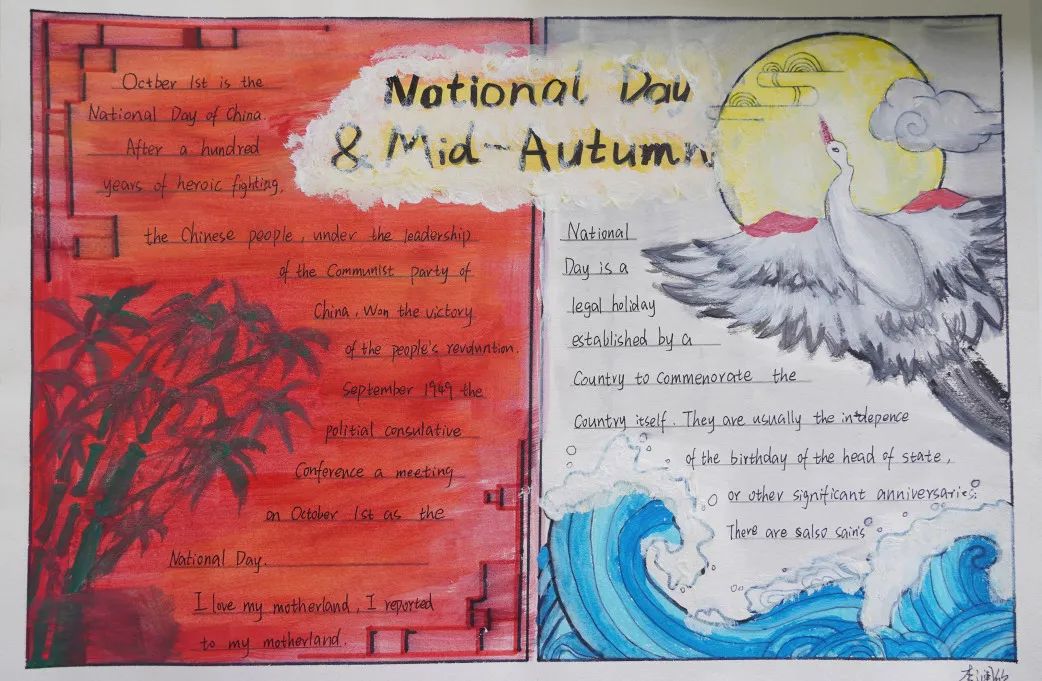 National Day
& Mid-Autumn
Octber 1st is the
National Day of China.
After a hundred
years of heroic fighting,
the Chinese people, under the leadership
of the Communist party of
China, Won the victory
of the people's revduntion.
September 1949 the
politial consulative
Conference a meeting
on October 1st as the
National Day.
I love my motherland, I reported
to my motherland.
National
Day is a
legal holiday
established by a
Country to commenorate the
Country itself. They are usually the intdepence
of the birthday of the head of state,
or other significant anniversaries.
There are salso sain's